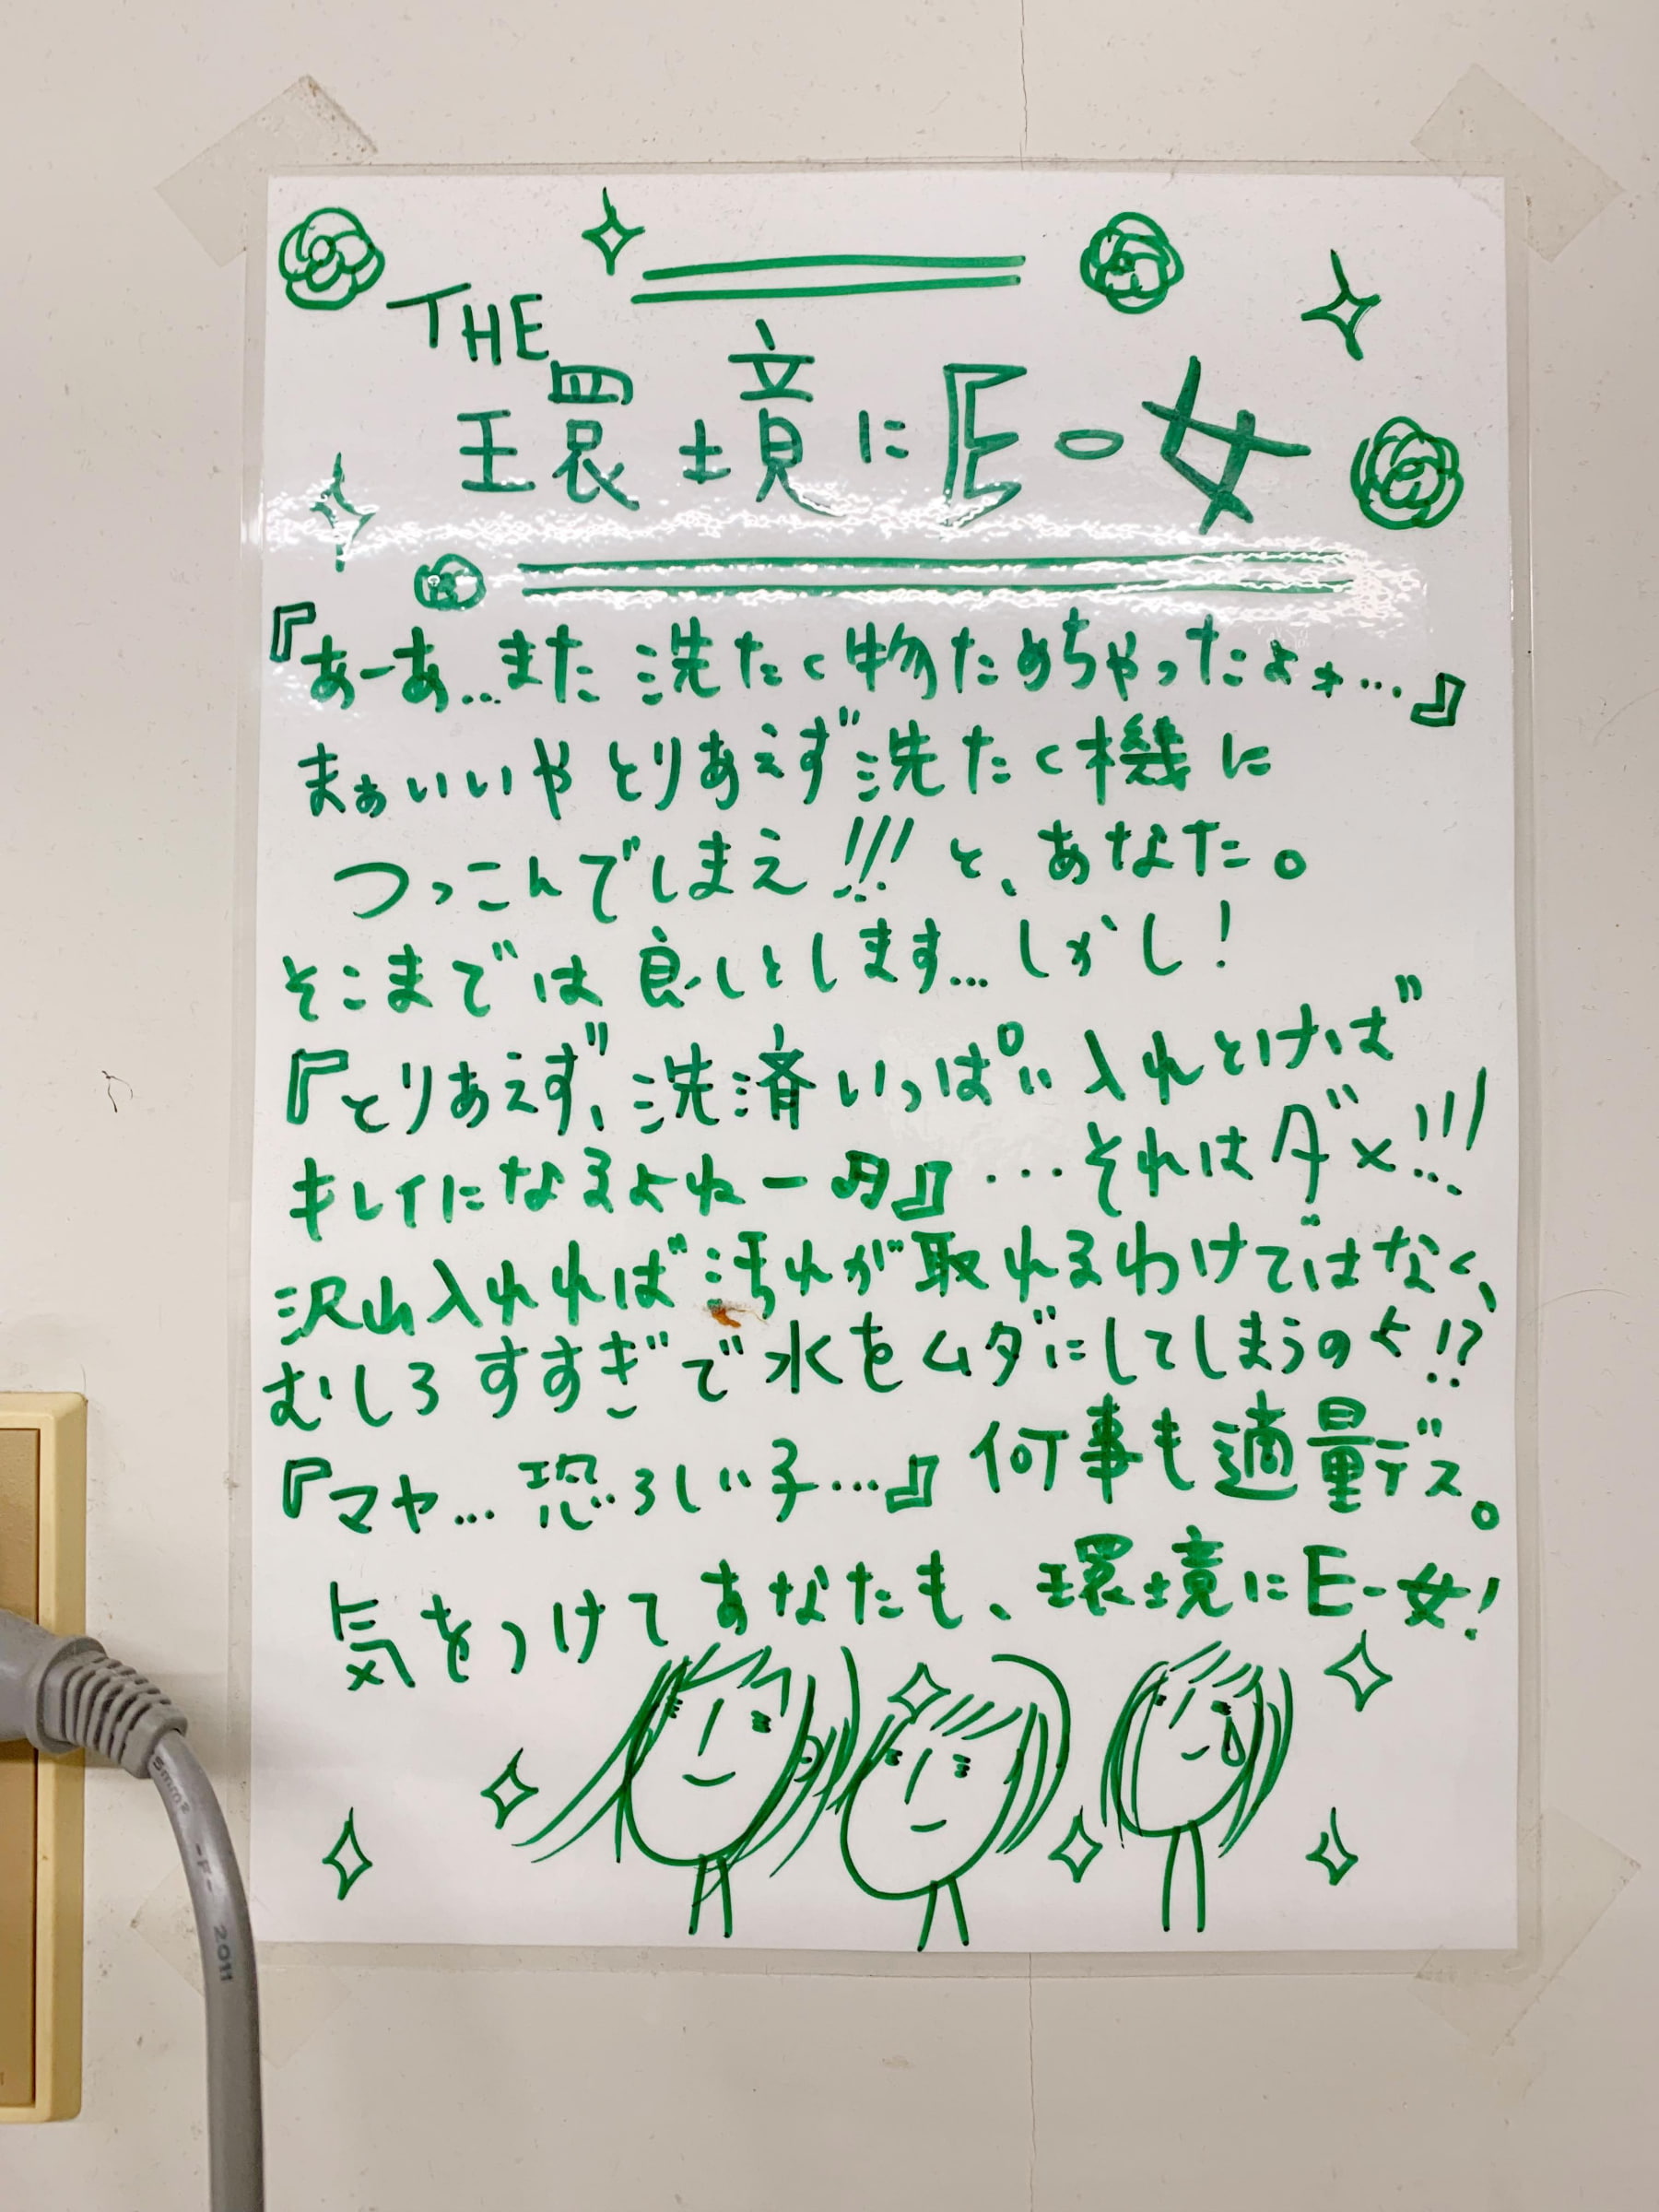 THE
環境にE-女
『あーあ…また洗たく物ためちゃったよォ…』
まぁいいやとりあえず洗たく機に
つっこんでしまえ!!!と、あなた。
そこまでは良しとします…しかし!
『とりあえず、洗済いっぱい入れとけば
キレイになるよねー♫』…それはダメ!!!
沢山入れれば汚れが取れるわけではなく、
むしろすすぎで水をムダにしてしまうのよ!?
『マヤ…恐ろしい子…』何事も適量デス。
気をつけてあなたも、環境にE-女!
5mm²
-F-
2011